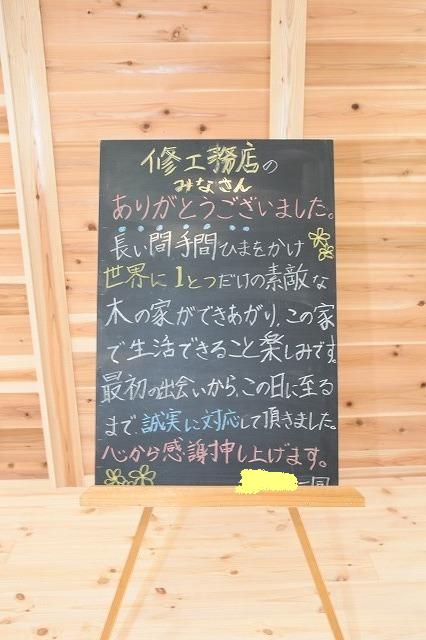 修工務店の
みなさん
ありがとうございました。
長い間手間ひまをかけ
世界に1とつだけの素敵な
木の家ができあがり、この家
で生活できること楽しみです。
最初の出会いから、この日に至る
まで、誠実に対応して頂きました。
心から感謝申し上げます。
一同